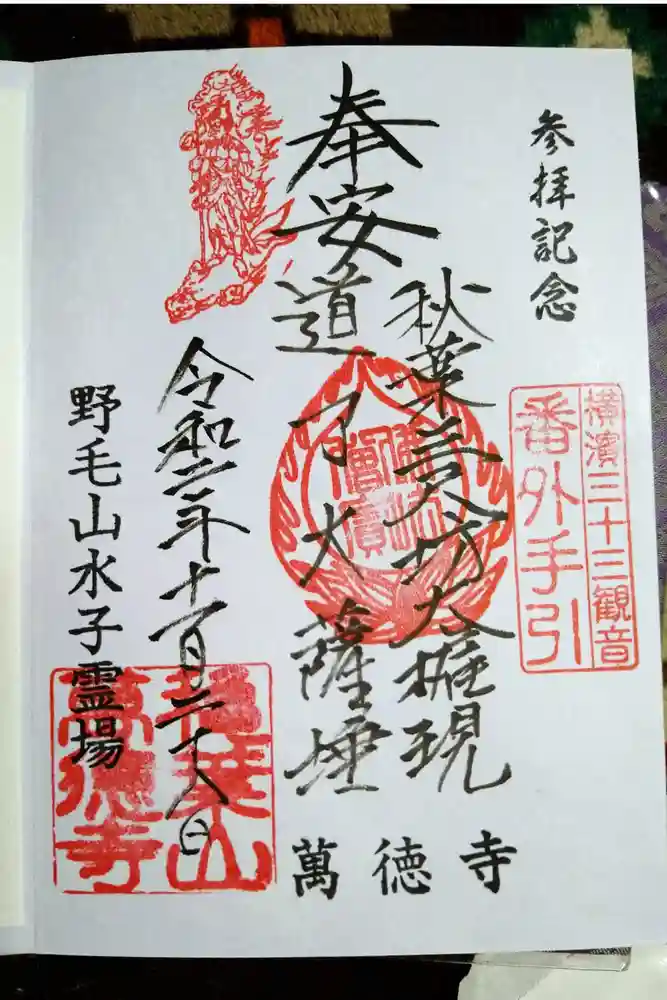 参拝記念
横濱三十三観音
番外手引
奉安
秋葉三尺坊大権現
道了大薩埵
佛法僧寶
萬徳寺
令和二年十一月二十八日
野毛山水子霊場
萬徳寺